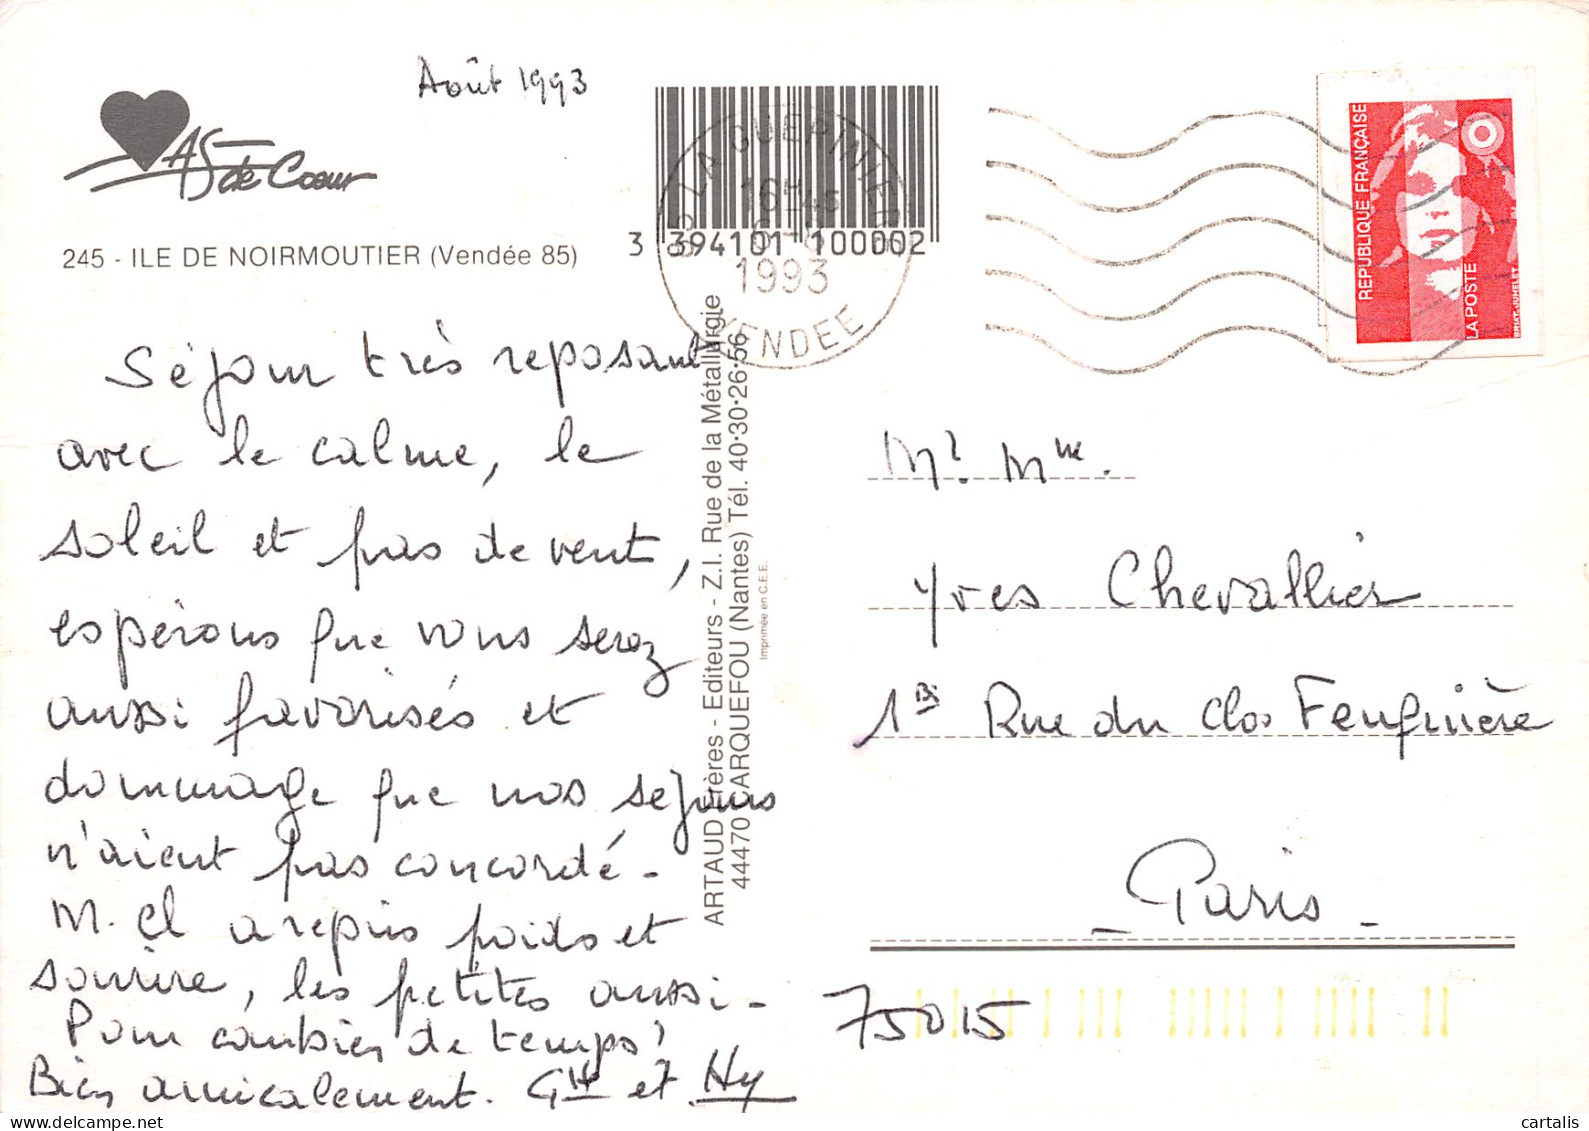 Août 1993
AS de Coeur
245 - ILE DE NOIRMOUTIER (Vendée 85)
3 394101 100002
LA GUERINIERE
16H45
1993
VENDEE
REPUBLIQUE FRANÇAISE
LA POSTE
BRIAT-JUMELET
Séjour très reposant
avec le calme, le
soleil et pas de vent,
espérons que vous serez
aussi favorisés et
dommage que nos séjours
n'aient pas concordé -
M. Cl a repris poids et
sourire, les petites aussi -
Pour combien de temps ?
Bien amicalement. et Hy
ARTAUD Frères - Editeurs - Z.I. Rue de la Métallurgie
44470 CARQUEFOU (Nantes) Tél. 40·30·26·56
Imprimée en C.E.E.
Mr. Mme.
Yves Chevallier
1 Bis Rue du Clos Feuquière
- Paris -
75015
cartalis